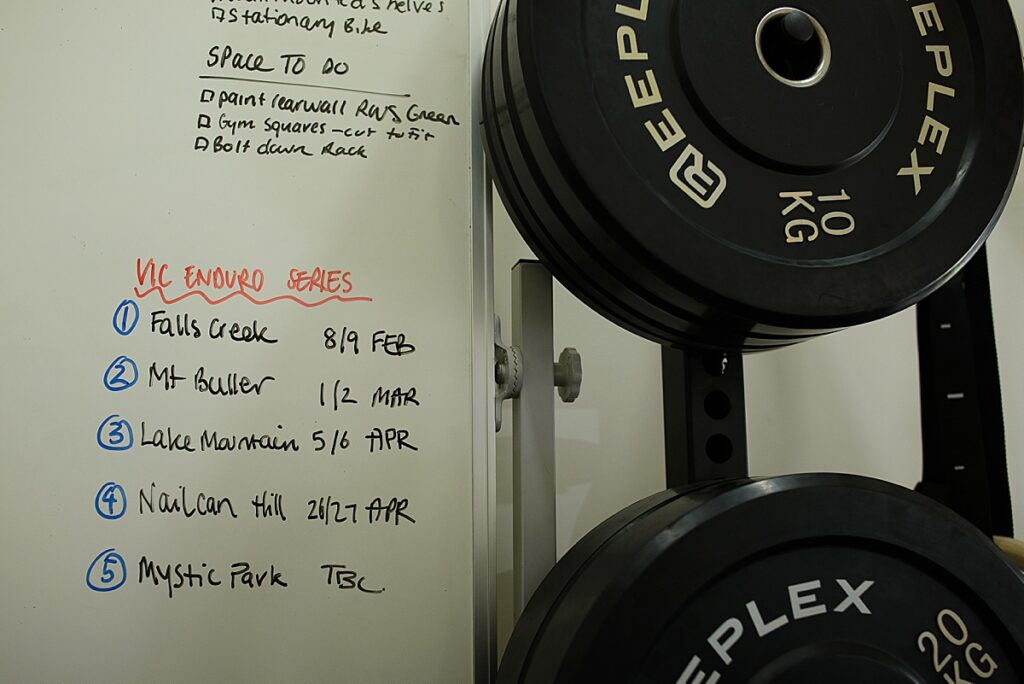 Shelves
Stationary Bike
SPACE TO DO
paint rearwall RWS Green
Gym squares - cut to fit
Bolt down Rack
VIC ENDURO SERIES
1 Falls Creek 8/9 FEB
2 Mt Buller 1/2 MAR
3 Lake Mountain 5/6 APR
4 Nailcan Hill 26/27 APR
5 Mystic Park TBC
REPL
REPLEX
10
KG
REPLEX
20
KG